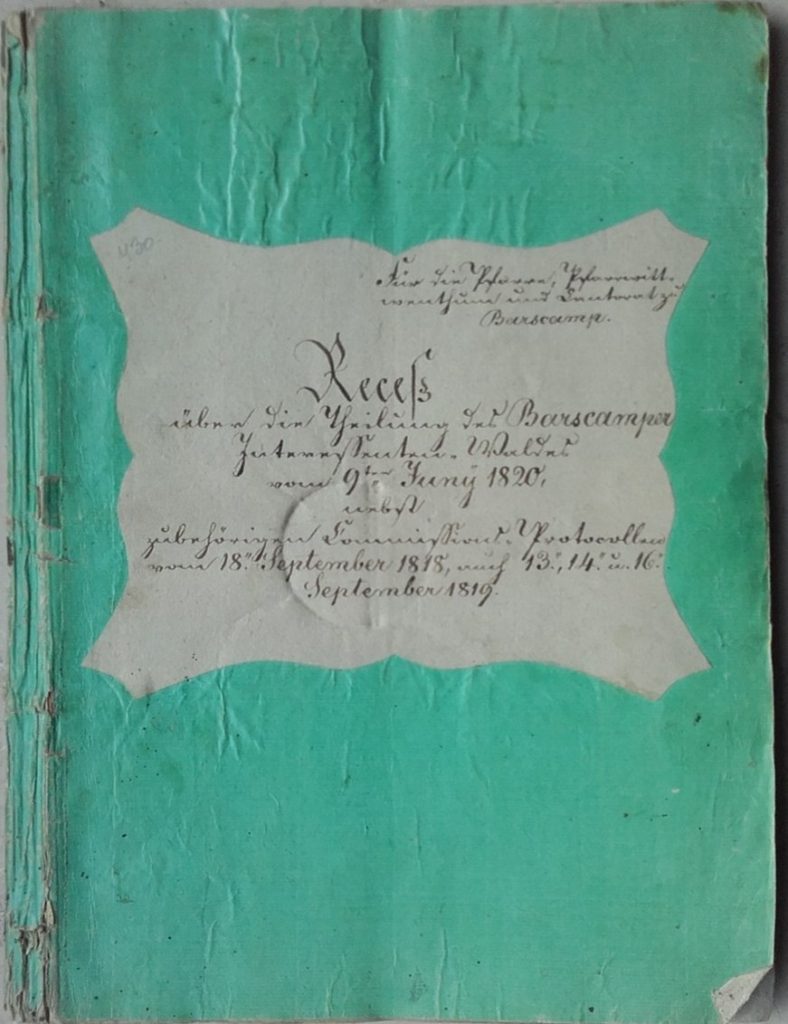 430
Für die Pfarre, Pfarrwitt-
wenthum und Cantorat zu
Barscamp.
Receß
über die Theilung des Barscamper
Interessenten-Waldes
vom 9ten Juny 1820,
nebst
zubehörigen Commissions-Protocollen
vom 18. September 1818, auch 13., 14. u. 16.
September 1819.